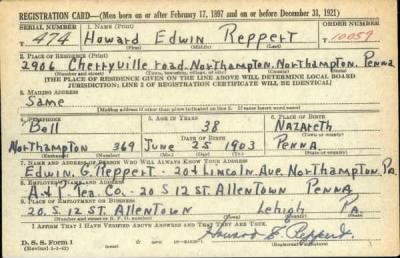 REGISTRATION CARD—(Men born on or after February 17, 1897 and on or before December 31, 1921)
SERIAL NUMBER 1. NAME (Print) ORDER NUMBER
474 Howard Edwin Reppert 10059
(First) (Middle) (Last)
2. PLACE OF RESIDENCE (Print)
2906 Cherryville road. Northampton. Northampton. Penna
(Number and street) (Town, township, village, or city) (County) (State)
[THE PLACE OF RESIDENCE GIVEN ON THE LINE ABOVE WILL DETERMINE LOCAL BOARD
JURISDICTION; LINE 2 OF REGISTRATION CERTIFICATE WILL BE IDENTICAL]
3. MAILING ADDRESS
Same
[Mailing address if other than place indicated on line 2. If same insert word same]
4. TELEPHONE 5. AGE IN YEARS 6. PLACE OF BIRTH
Bell 38 Nazareth
DATE OF BIRTH (Town or county)
Northampton 369 June 25 1903 Penna.
(Exchange) (Number) (Mo.) (Day) (Yr.) (State or country)
7. NAME AND ADDRESS OF PERSON WHO WILL ALWAYS KNOW YOUR ADDRESS
Edwin. G. Reppert - 204 Lincoln. Ave. Northampton. Pa.
8. EMPLOYER'S NAME AND ADDRESS
A. & P. Tea. Co. - 20 S 12 St. Allentown Penna
9. PLACE OF EMPLOYMENT OR BUSINESS
20. S. 12 St. Allentown Lehigh Pa.
(Number and street or R. F. D. number) (Town) (County) (State)
I AFFIRM THAT I HAVE VERIFIED ABOVE ANSWERS AND THAT THEY ARE TRUE.
D. S. S. Form 1 Howard E. Reppert.
(Revised 1-1-42) (over) (Registrant's signature)